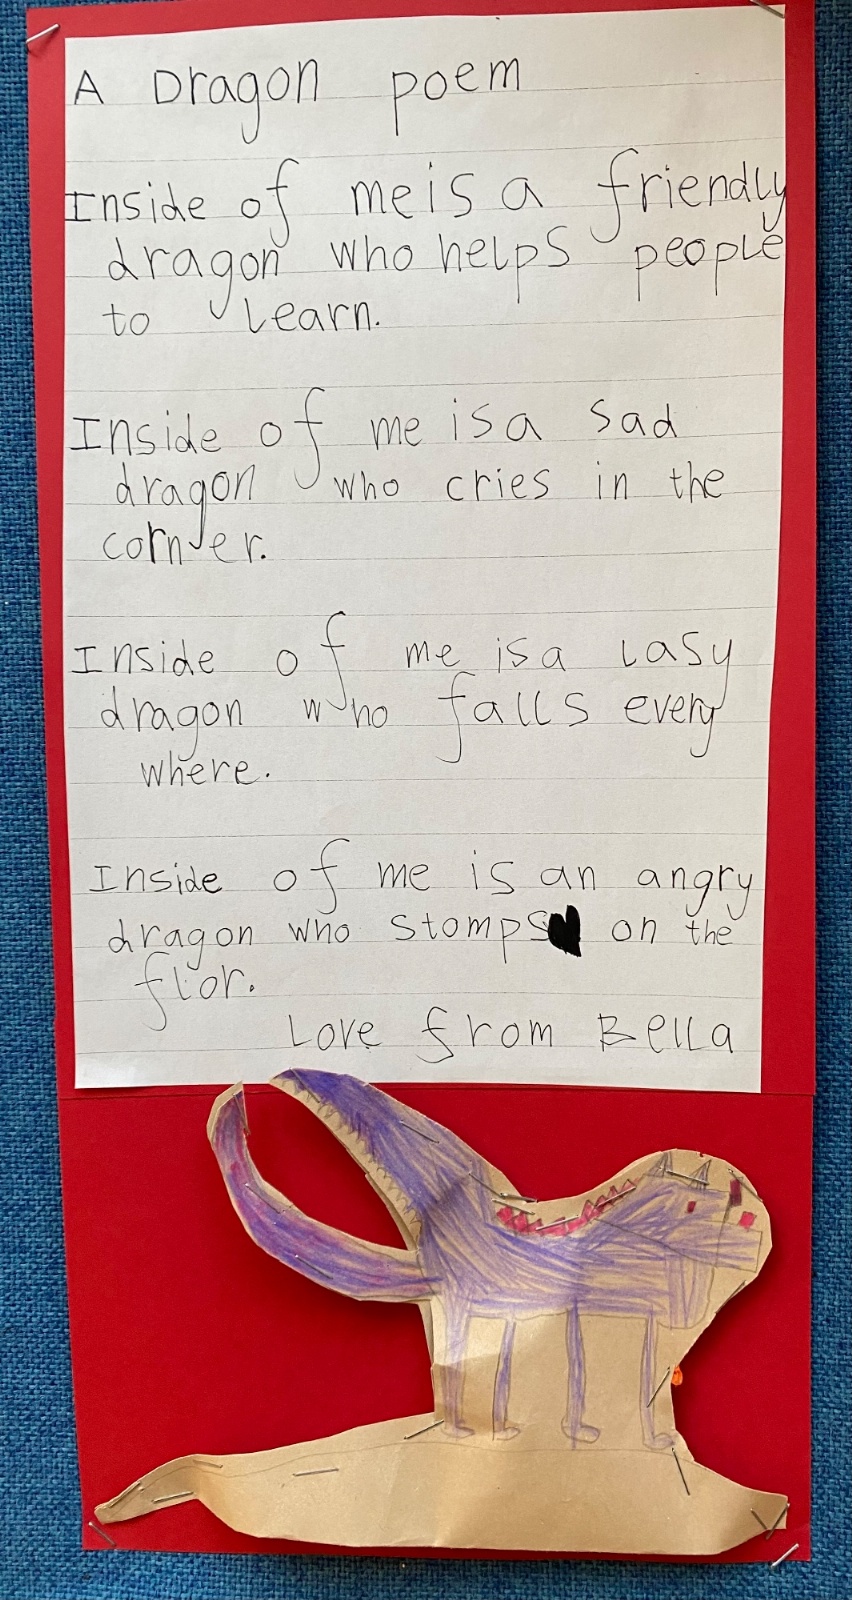 A Dragon poem
Inside of me is a friendly
dragon who helps people
to learn.
Inside of me is a sad
dragon who cries in the
corner.
Inside of me is a lasy
dragon who falls every
where.
Inside of me is an angry
dragon who stomps on the
flor.
Love from Bella